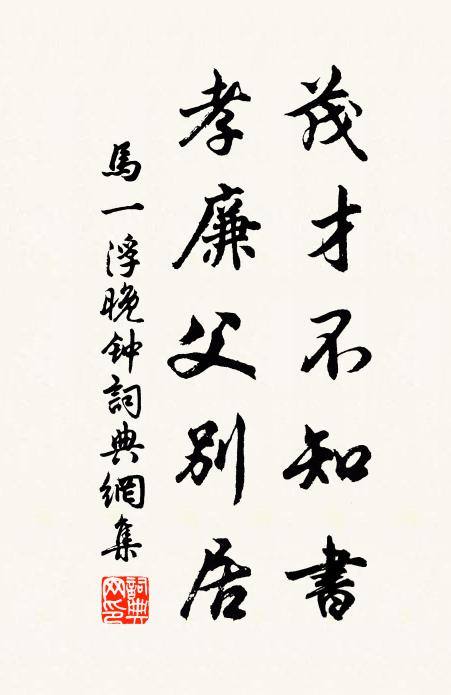 茂才不知書
孝廉父別居
馬一浮晚钟詞典網集
詞典網印